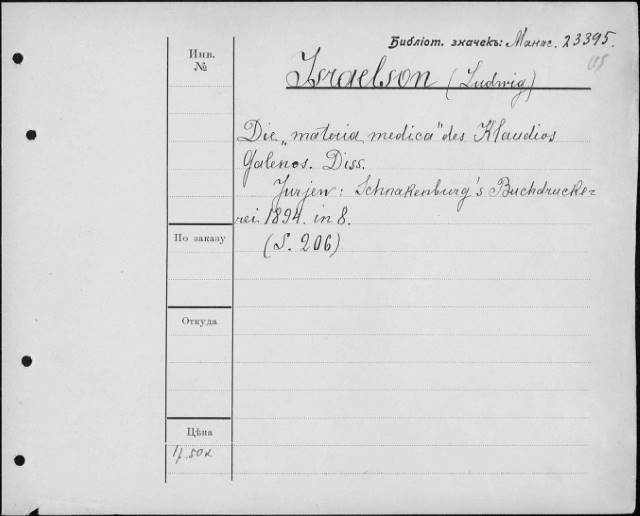 Библіот. значекъ: Манас. 23395.
Инв.
№
Israelson (Ludwig)
Die „materia medica" des Klaudios
Galenos. Diss.
Jurjew: Schnakenburg's Buchdrucke=
rei 1894. in 8.
(S. 206)
По заказу
Откуда
Цѣна